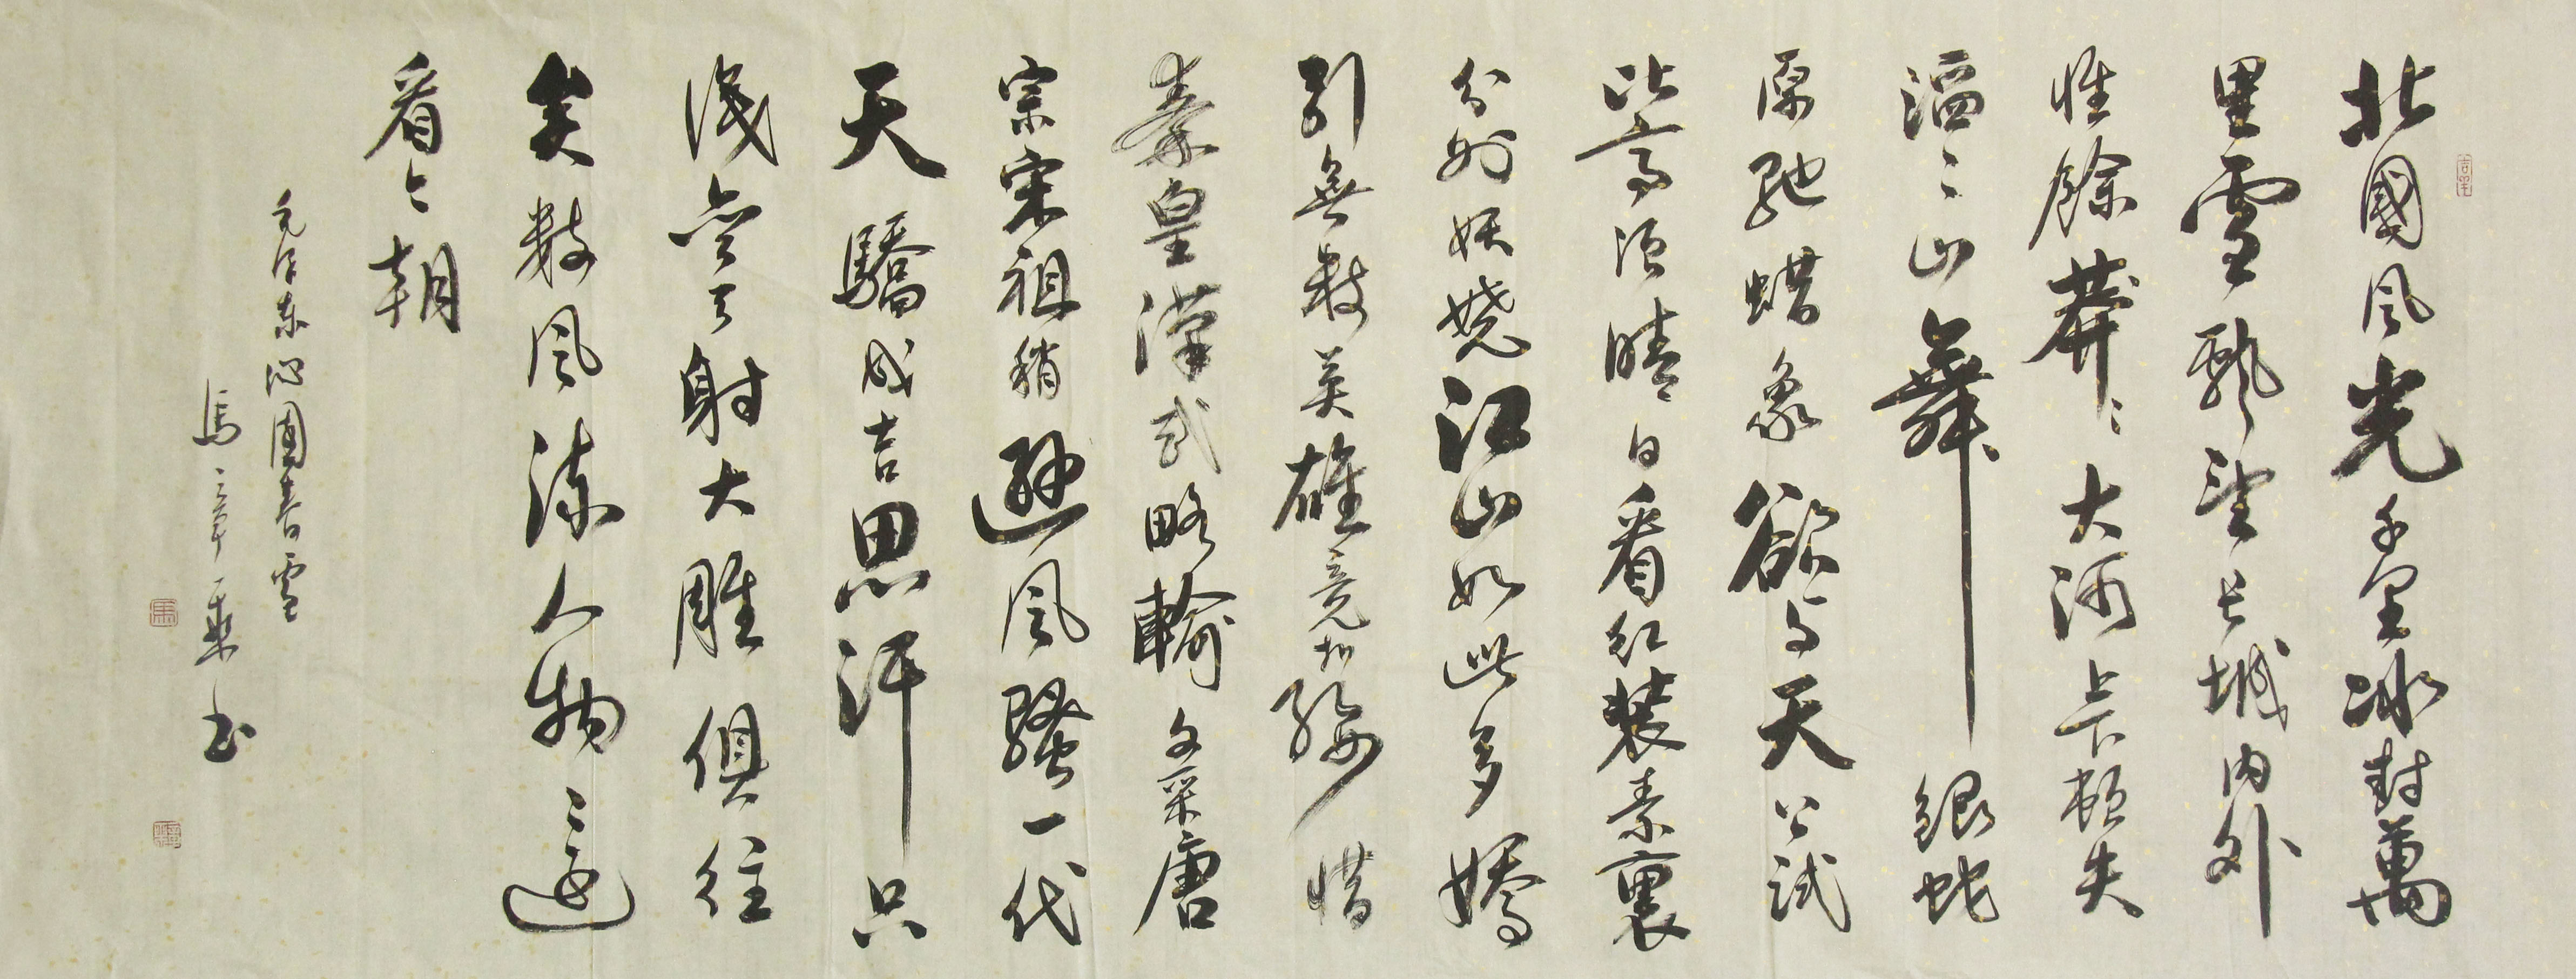 北國風光千里冰封萬
里雪飄望长城内外
惟餘莽〻大河上下頓失
滔〻山舞銀蛇
原馳蜡象欲与天公試
比高須晴日看红装素裹
分外妖娆江山如此多嬌
引無數英雄競折腰惜
秦皇漢武略輸文采唐
宗宋祖稍遜風騷一代
天驕成吉思汗只
識彎弓射大雕俱往
矣數風流人物還
看今朝
毛泽东沁園春雪
馬章乘书